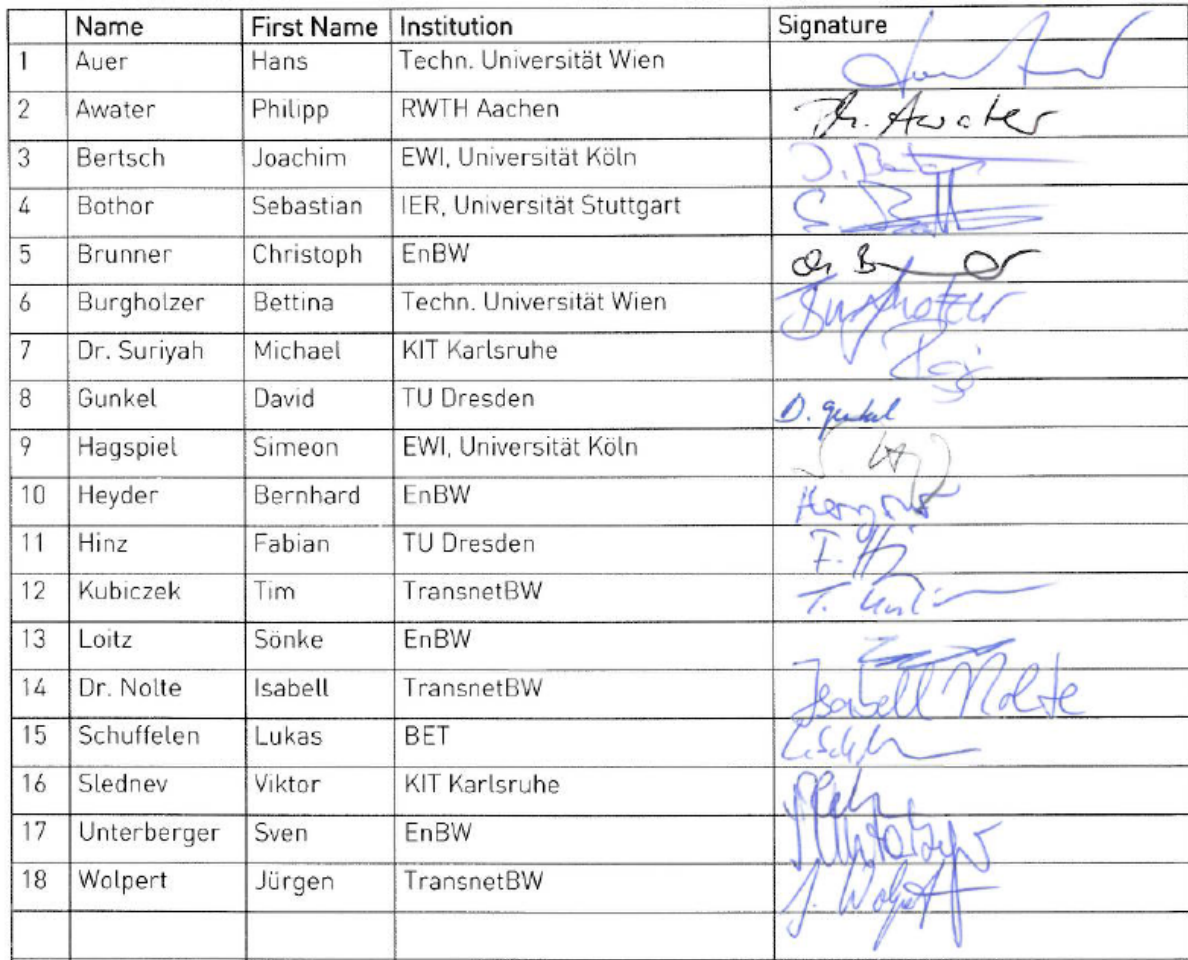 Name First Name Institution Signature
1 Auer Hans Techn. Universität Wien
2 Awater Philipp RWTH Aachen Ph. Awater
3 Bertsch Joachim EWI, Universität Köln
4 Bothor Sebastian IER, Universität Stuttgart
5 Brunner Christoph EnBW
6 Burgholzer Bettina Techn. Universität Wien Burgholzer
7 Dr. Suriyah Michael KIT Karlsruhe
8 Gunkel David TU Dresden D. Gunkel
9 Hagspiel Simeon EWI, Universität Köln
10 Heyder Bernhard EnBW
11 Hinz Fabian TU Dresden
12 Kubiczek Tim TransnetBW
13 Loitz Sönke EnBW
14 Dr. Nolte Isabell TransnetBW Isabell Nolte
15 Schuffelen Lukas BET
16 Slednev Viktor KIT Karlsruhe
17 Unterberger Sven EnBW
18 Wolpert Jürgen TransnetBW J. Wolpert